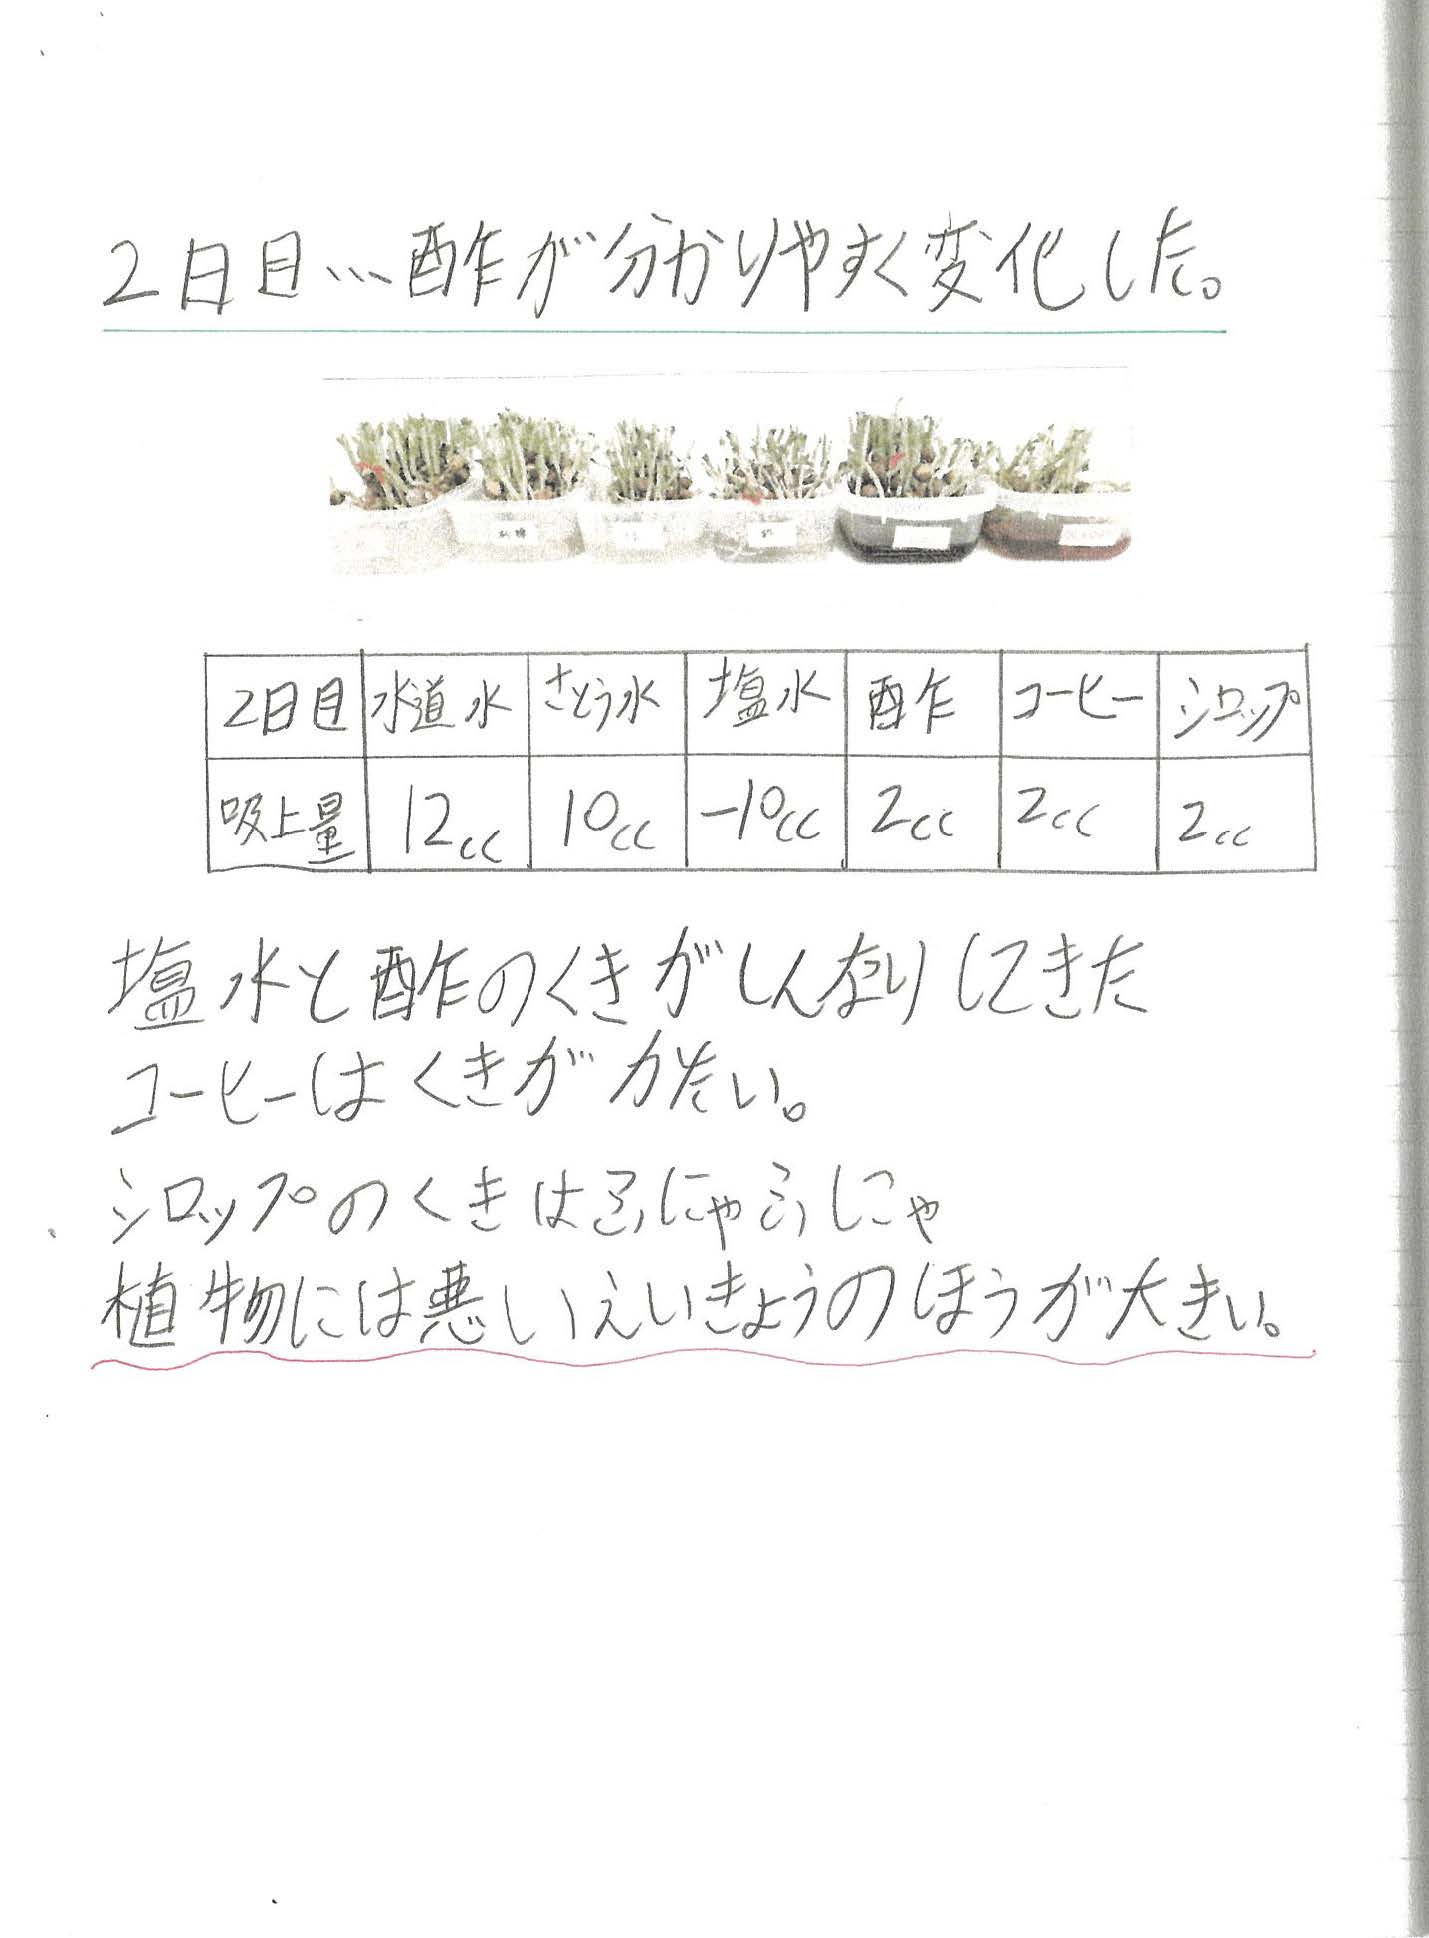 2日目…酢が分かりやすく変化した。
2日目 水道水 さとう水 塩水 酢 コーヒー シロップ
吸上量 12cc 10cc -10cc 2cc 2cc 2cc
塩水と酢のくきがしんなりしてきた
コーヒーはくきがかたい。
シロップのくきはふにゃふにゃ
植物には悪いえいきょうのほうが大きい。